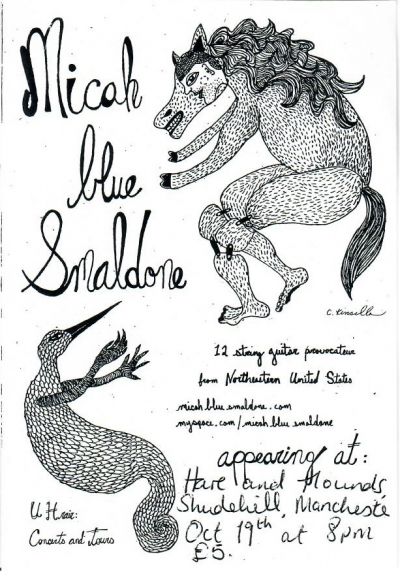 Micah
blue
Smaldone
12 string guitar provocateur
from Northeastern United States
micah blue smaldone . com
myspace.com/micah blue smaldone
appearing at:
Hare and Hounds,
Shudehill, Mancheste
Oct 19th at 8pm
£5.
Concerts and Tours